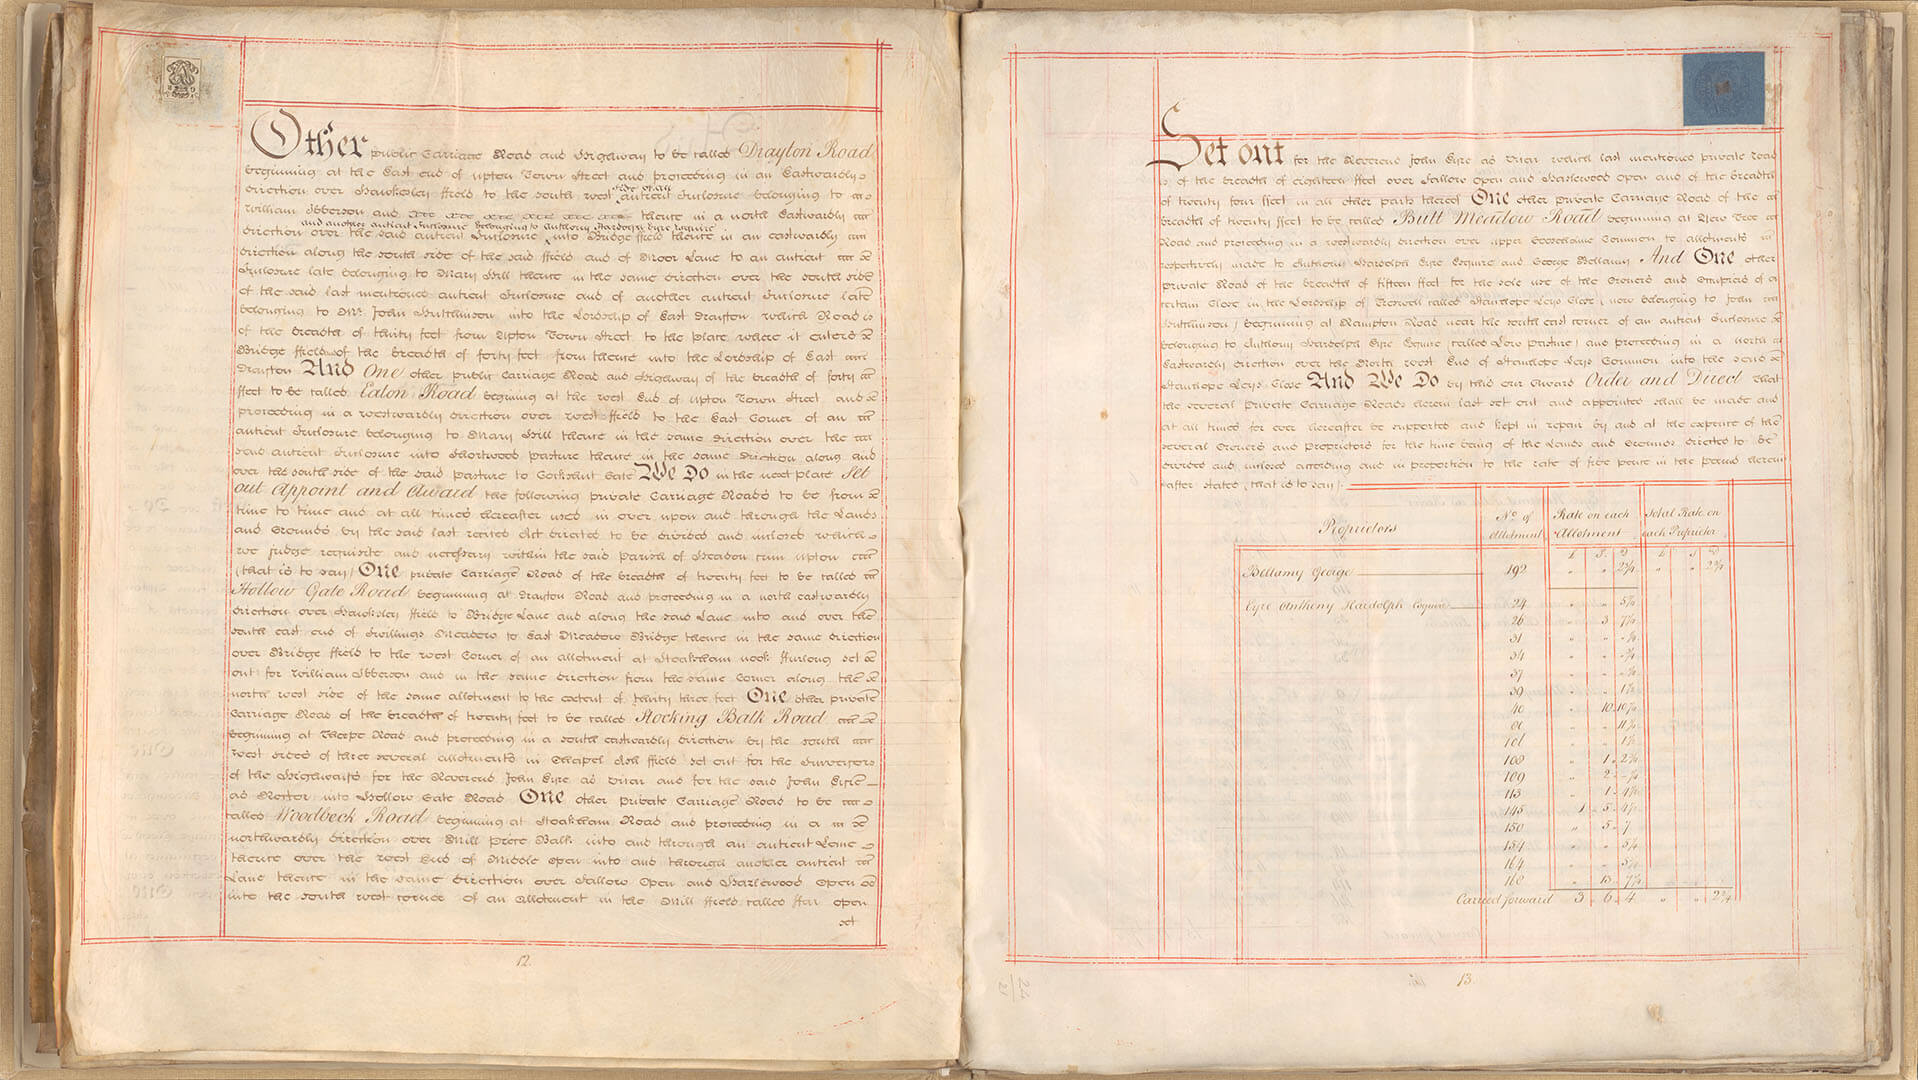 Other public Carriage Road and Highway to be called Drayton Road
beginning at the East end of Upton Town Street and proceeding in an Eastwardly
direction over Hawksley ffield to the south west side of an antient Inclosure belonging to
William Ibberson and thence in a north Eastwardly
and another antient Inclosure belonging to Anthony Hardolph Eyre Esquire
direction over the said antient Inclosure into Bridge ffield thence in an eastwardly
direction along the south side of the said ffield and of Moor Lane to an antient
Inclosure late belonging to Mary Hill thence in the same direction over the south side
of the said last mentioned antient Inclosure and of another antient Inclosure late
belonging to Mr. John Hutchinson into the Lordship of East Drayton which Road is
of the breadth of thirty feet from Upton Town Street to the place where it enters
Bridge ffield and of the breadth of forty feet from thence into the Lordship of East
Drayton And One other public Carriage Road and Highway of the breadth of forty
ffeet to be called Eaton Road begining at the west End of Upton Town Street and
proceeding in a westwardly direction over west ffield to the East Corner of an
antient Inclosure belonging to Mary Hill thence in the same direction over the
said antient Inclosure into Shortwood pasture thence in the same direction along and
over the south side of the said pasture to Gate We Do in the next place Set
out Appoint and Award the following private Carriage Roads to be from
time to time and at all times hereafter used in over upon and through the Lands
and Grounds by the said last recited Act directed to be divided and inclosed which
we judge requisite and necessary within the said parish of Headon cum Upton
(that is to say) One private Carriage Road of the breadth of twenty feet to be called
Hollow Gate Road beginning at Drayton Road and proceeding in a north eastwardly
direction over Hawksley ffield to Bridge Lane and along the said Lane into and over the
south east end of Meadow to East Meadow Bridge thence in the same direction
over Bridge ffield to the west Corner of an allotment at Stoakham nook ffurlong set
out for William Ibberson and in the same direction from the same Corner along the
north west side of the same allotment to the extent of thirty three feet One other private
Carriage Road of the breadth of twenty feet to be called Stocking Balk Road
beginning at Thorpe Road and proceeding in a south eastwardly direction by the south
west sides of three several allotments in Chapel Ash ffield set out for the Surveyors
of the Highways for the Reverend John Eyre as Vicar and for the said John Eyre
as Rector into Hollow Gate Road One other private Carriage Road to be
called Woodbeck Road beginning at Stoakham Road and proceeding in a
northwardly direction over Mill Balk into and through an antient Lane
thence over the west End of Middle Open into and through another antient
Lane thence in the same direction over Sallow Open and Hazlewood Open
into the south west corner of an Allotment in the Mill ffield called ffar open
set
12
Set out for the Reverend John Eyre as Vicar which last mentioned private road
is of the breadth of eighteen ffeet over Sallow Open and Hazlewood Open and of the breadth
of twenty four ffeet in all other parts thereof One other private Carriage Road of the
breadth of twenty ffeet to be called Butt Meadow Road beginning at
Road and proceeding in a westwardly direction over upper Common to allotments
respectively made to Anthony Hardolph Eyre Esquire and George Bellamy And One other
private Road of the breadth of fifteen ffeet for the sole use of the Owners and Occupiers of a
certain Close in the Lordship of Treswell called Stanhope Leys Close (now belonging to John
Hutchinson) beginning at Rampton Road near the south east corner of an antient Inclosure
belonging to Anthony Hardolph Eyre Esquire (called Low Pasture) and proceeding in a north
Eastwardly direction over the North west End of Stanhope Leys Common into the said
Stanhope Leys Close And We Do by this our Award Order and Direct that
the several Private Carriage Roads herein last set out and appointed shall be made and
at all times for ever hereafter be supported and kept in repair by and at the expence of the
several Owners and Proprietors for the time being of the Lands and Grounds directed to be
divided and inclosed according and in proportion to the rate of five pence in the pound herein
after stated (that is to say)
Proprietors No. of Allotment Rate on each Allotment Total Rate on each Proprietor
£ S D £ S D
Bellamy George 192 " " 2¾ " " 2¾
Eyre Anthony Hardolph Esquire 24
26
31
34
37
39
40
101
108
109
113
145
150 " 5 7
154
164
168
Carried forward 3 6 4 " " 2¾
13